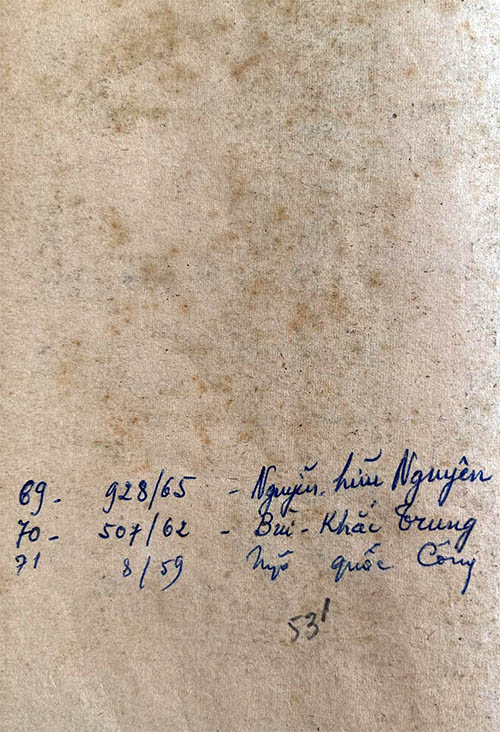 69- 928/65 - Nguyễn hữu Nguyên
70- 507/62 - Bùi-Khắc Trung
71 8/59 Ngô quốc Công
53'